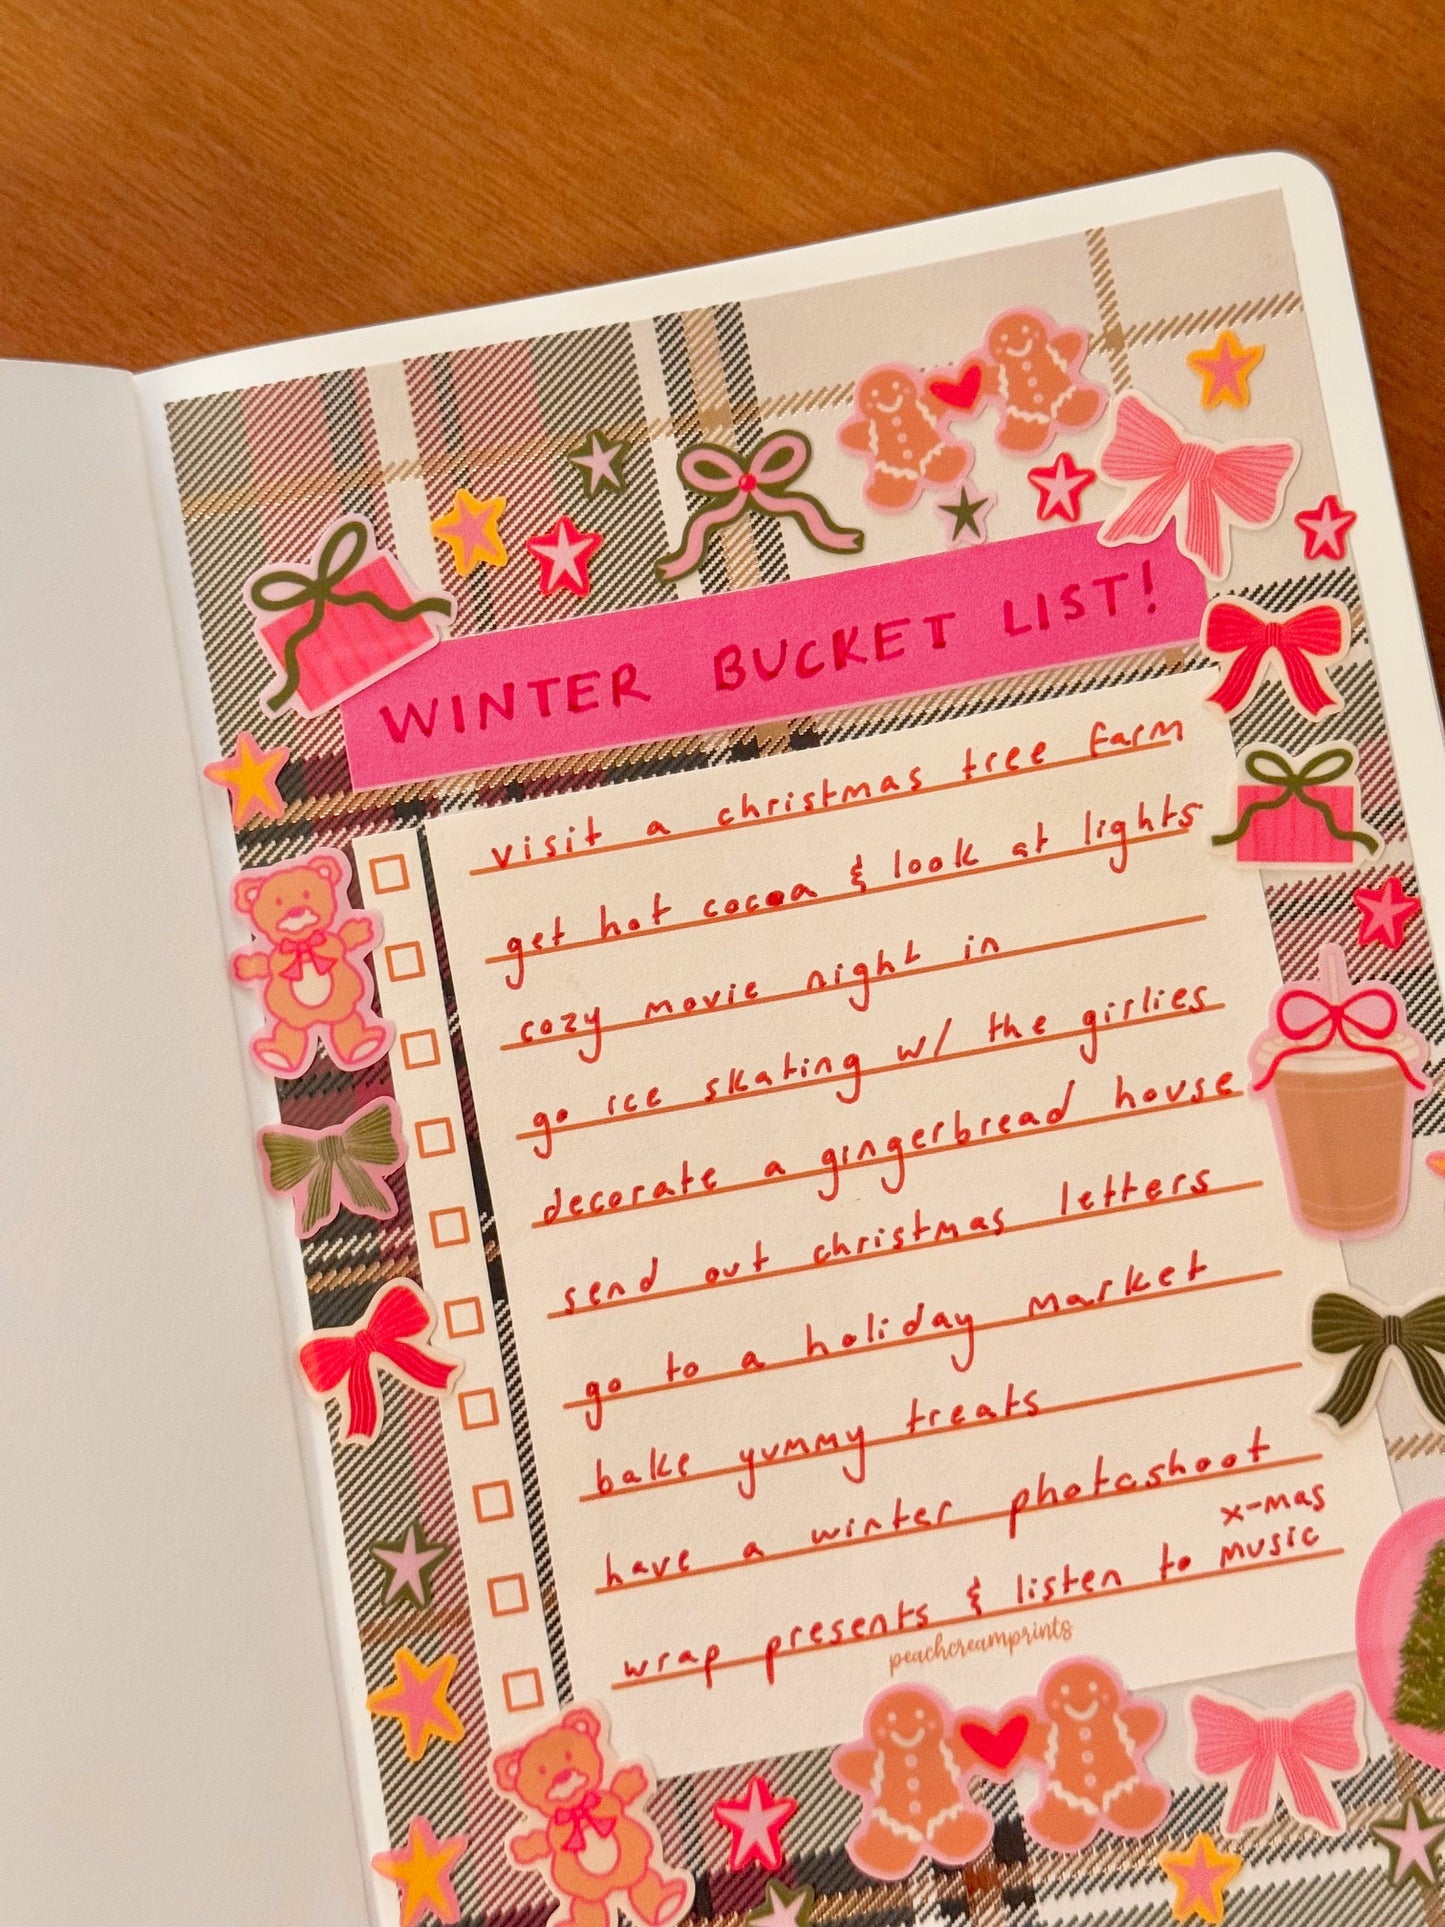 WINTER BUCKET LIST!
visit a christmas tree farm
get hot cocoa & look at lights
cozy movie night in
go ice skating w/ the girlies
decorate a gingerbread house
send out christmas letters
go to a holiday market
bake yummy treats
have a winter photoshoot
wrap presents & listen to x-mas music
peachcreamprints